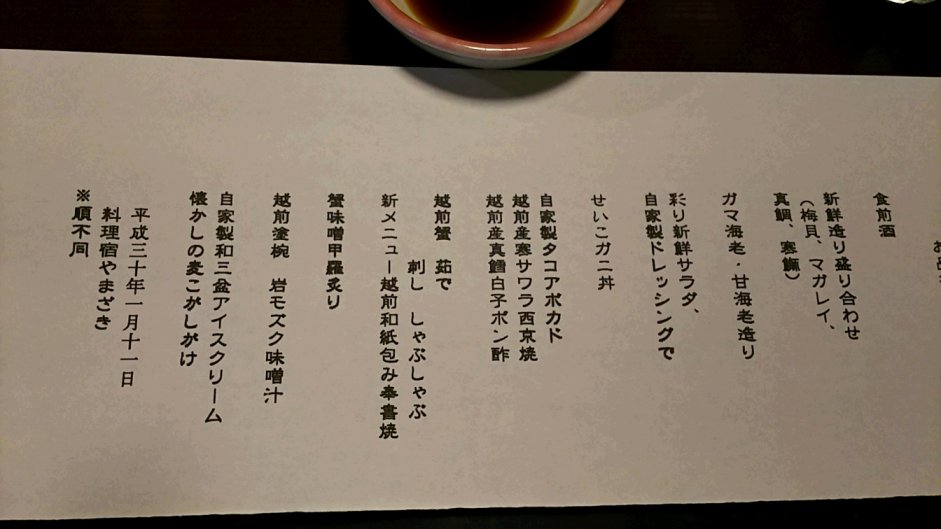 食前酒
新鮮造り盛り合わせ
（梅貝、マガレイ、
真鯛、寒鰤）
ガマ海老・甘海老造り
彩り新鮮サラダ、
自家製ドレッシングで
せいこガニ丼
自家製タコアボカド
越前産寒サワラ西京焼
越前産真鱈白子ポン酢
越前蟹　茹で
刺し　しゃぶしゃぶ
新メニュー越前和紙包み奉書焼
蟹味噌甲羅炙り
越前塗椀　岩モズク味噌汁
自家製和三盆アイスクリーム
懐かしの麦こがしがけ
平成三十年一月十一日
料理宿やまざき
※順不同